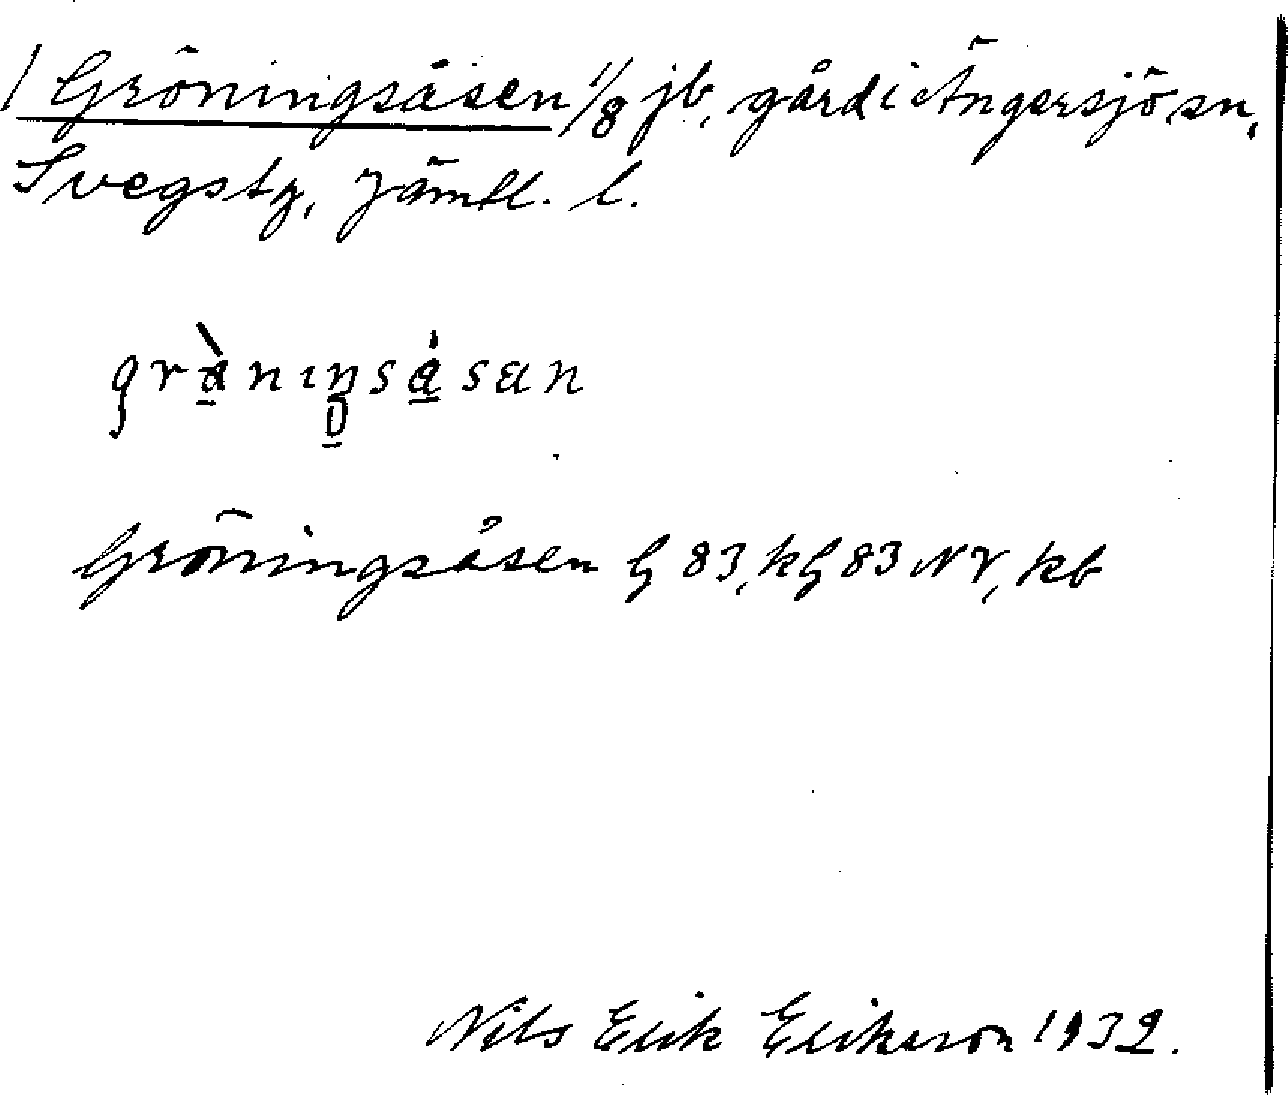 / Gröningsåsen 1/8 jb, gård i Ängersjö sn,
Svegs tg, Jämtl. l.
Gröningsåsen G 83, kG 83 NV, kb
Nils Erik Erikson 1932.